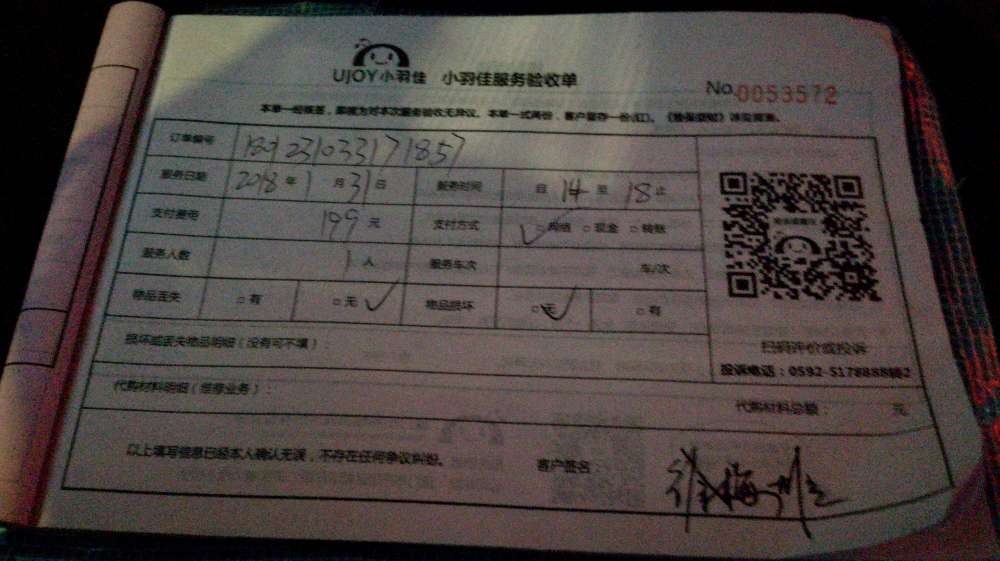 UJOY小羽佳 小羽佳服务验收单
No.0053572
本单一经核签,即视为对本次服务验收无异议。本单一式两份,客户留存一份(红)。
订单编号 1801231033171857
服务日期 2018年1月31日 服务时间 自14至18止
支付费用 199元 支付方式 ✓□网络 □现金 □转账
服务人数 1人 服务车次 车/次
物品丢失 □有 □无✓ 物品损坏 □无✓ □有
损坏或丢失物品明细(没有可不填):
扫码评价或投诉
投诉电话:0592-5178888转2
代购材料明细(维修业务):
代购材料总额: 元
以上填写信息已经本人确认无误,不存在任何争议纠纷。 客户签名: